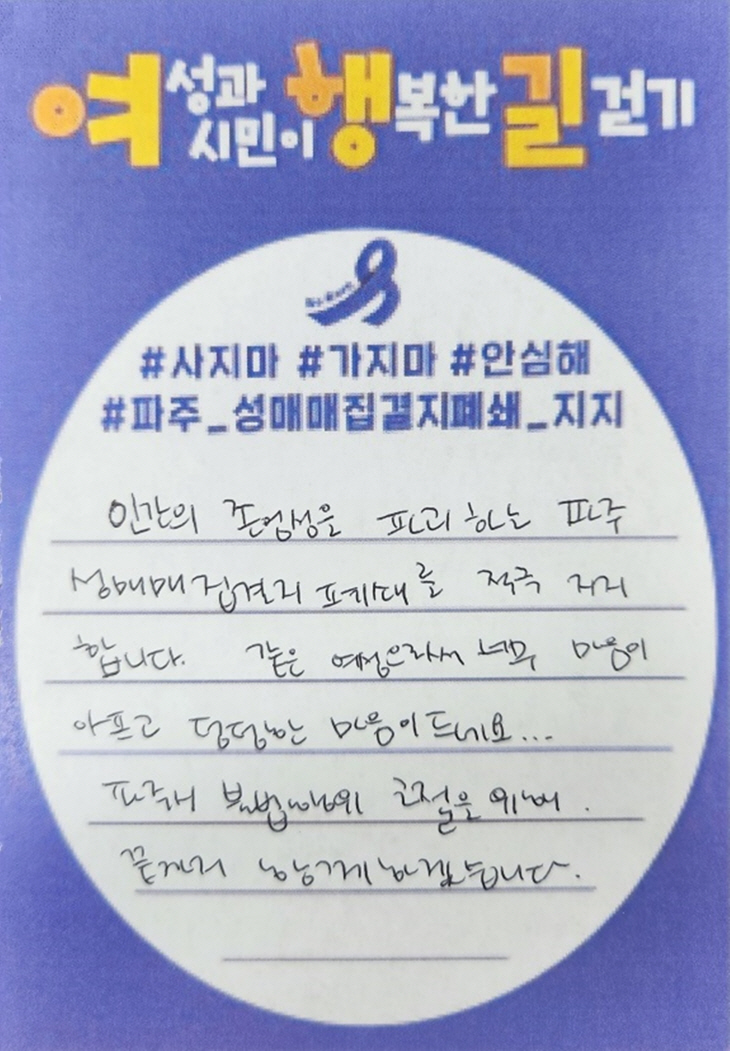 여성과 시민이 행복한 길 걷기
#사지마 #가지마 #안심해
#파주_성매매집결지폐쇄_지지
인간의 존엄성을 파괴하는 파주
성매매집결지 폐쇄를 적극 지지
합니다. 같은 여성으로서 너무 마음이
아프고 답답한 마음이 드네요...
파주시 불법행위 근절을 위해.
끝까지 함께 하겠습니다.